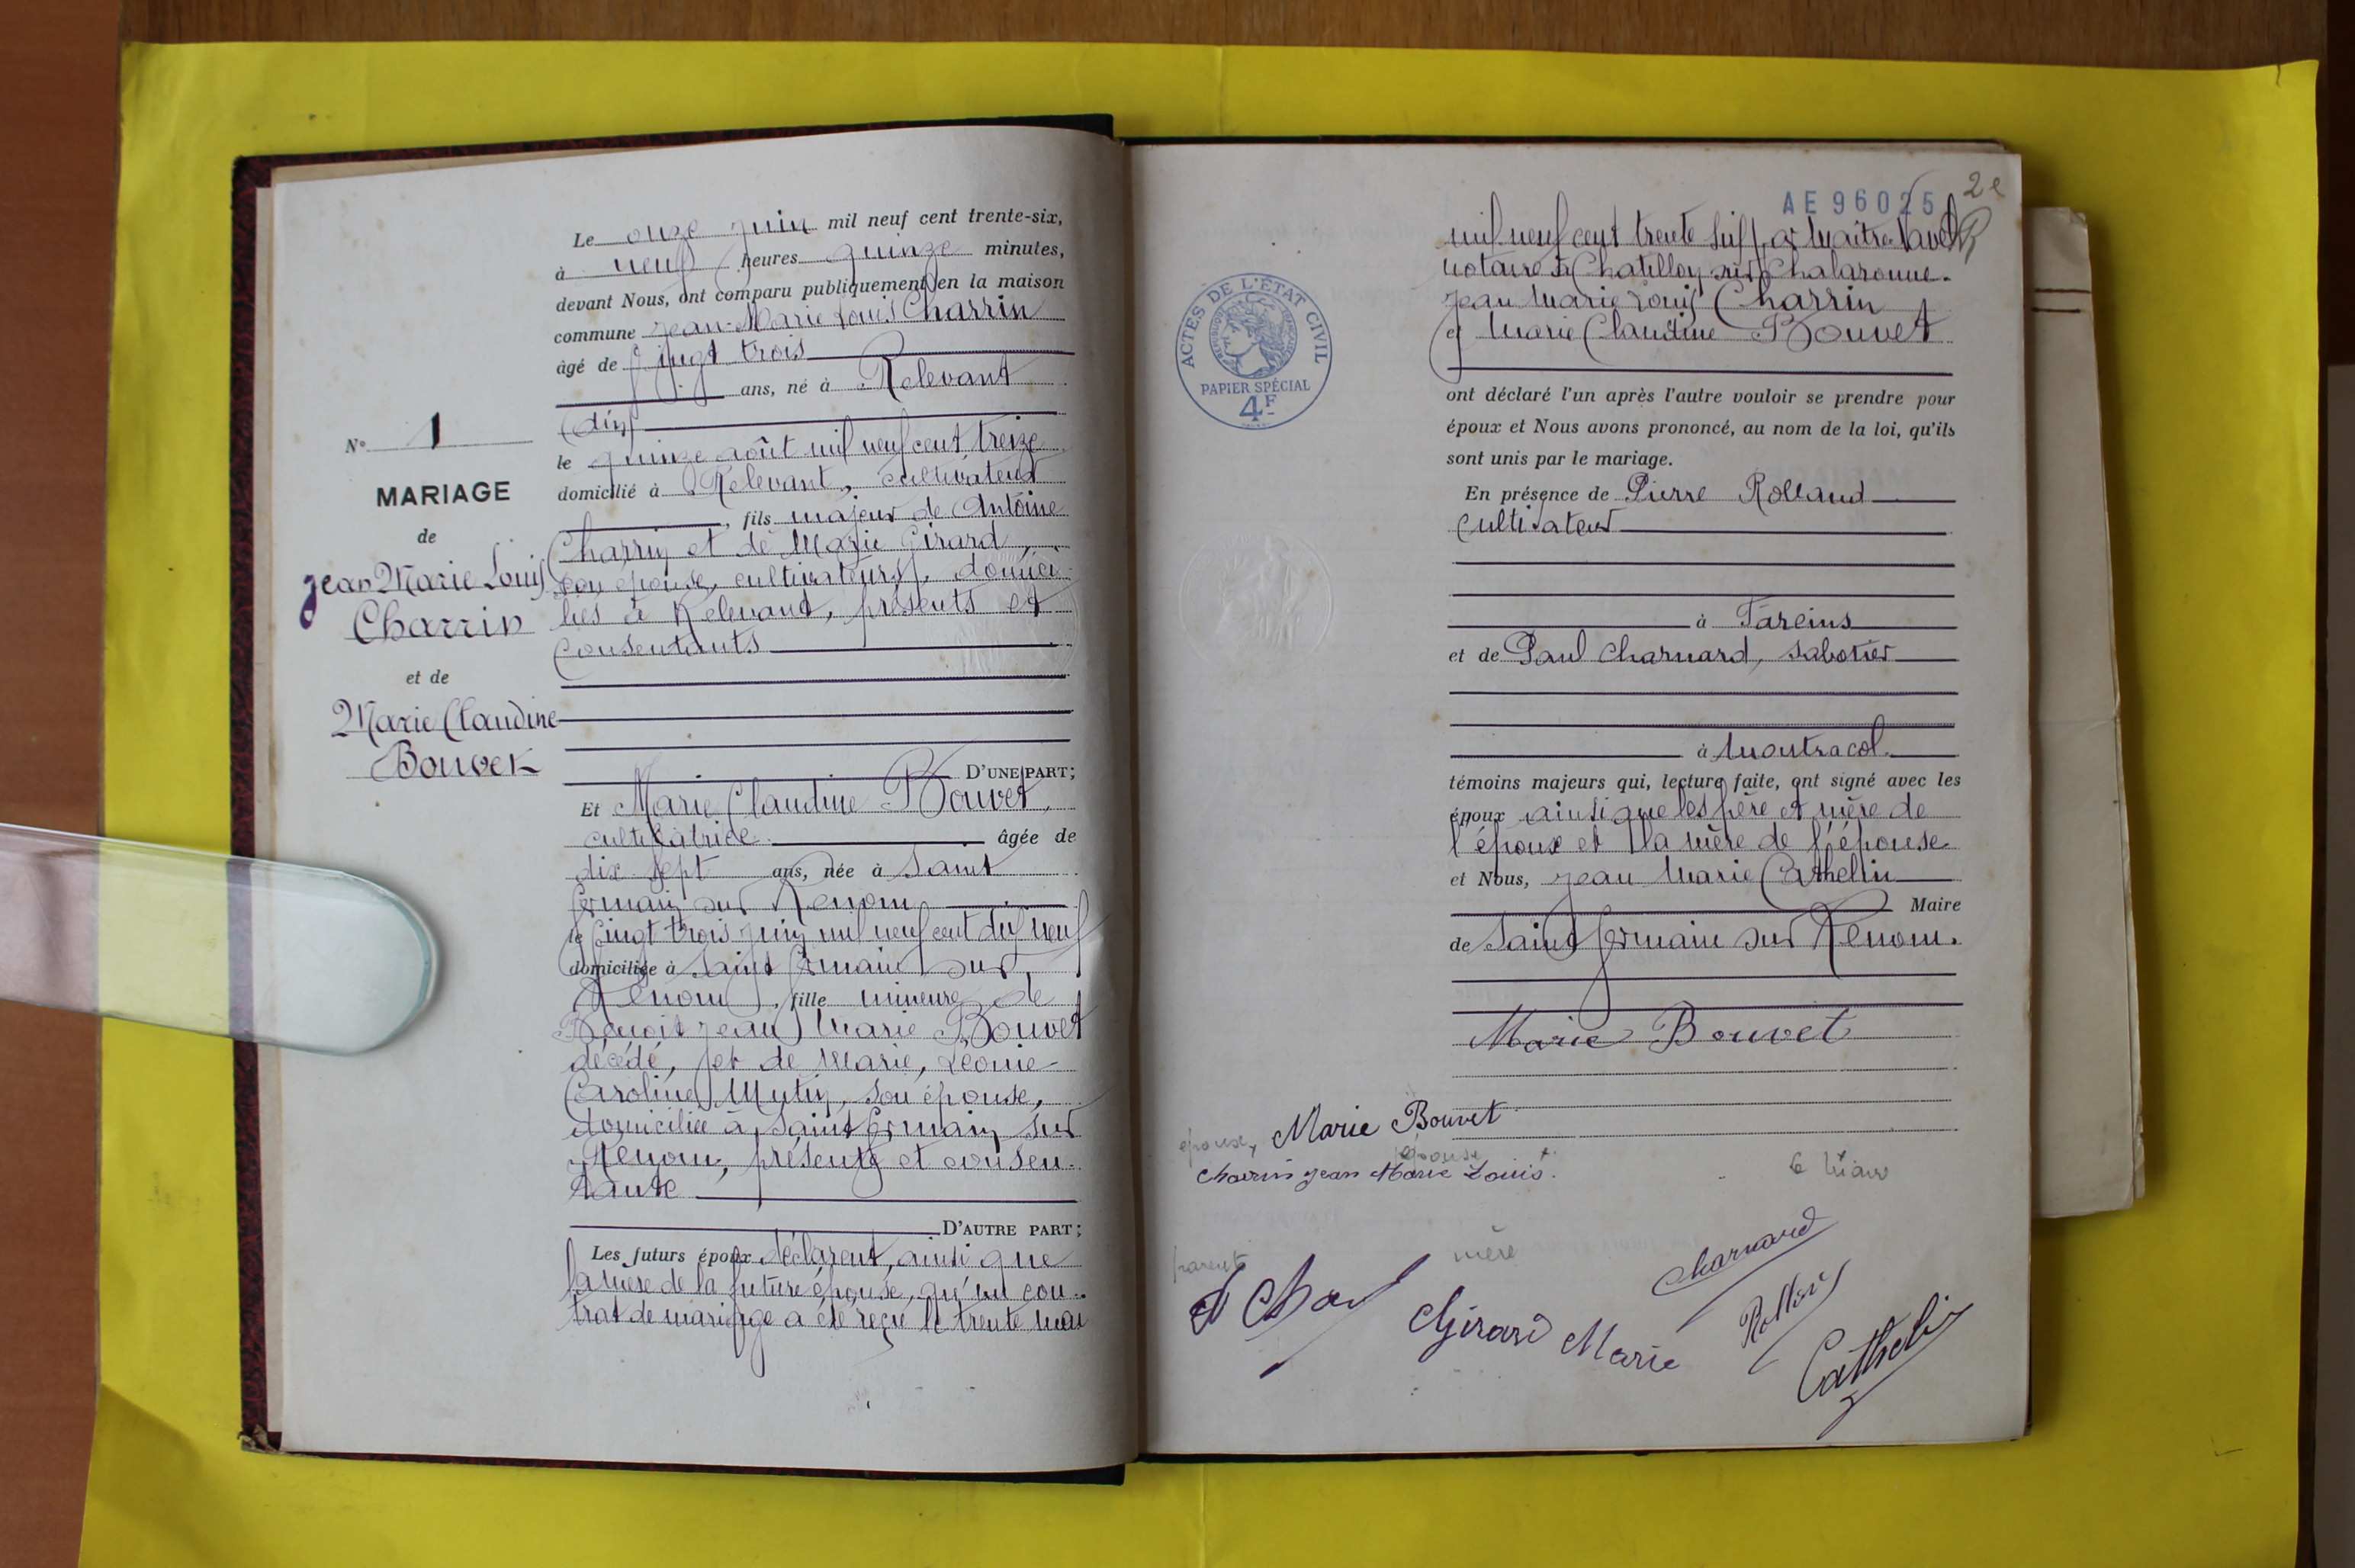 Le onze juin mil neuf cent trente-six,
à neuf heures quinze minutes,
devant Nous, ont comparu publiquement en la maison
commune Jean-Marie Louis Charrin
âgé de vingt trois
ans, né à Relevant
(Ain)
le quinze août mil neuf cent treize
domicilié à Relevant, cultivateur
, fils majeur de Antoine
Charrin et de Marie Girard,
son épouse, cultivateurs, domici-
liés à Relevant, présents et
consentants
N° 1
MARIAGE
de
Jean Marie Louis
Charrin
et de
Marie Claudine
Bouvet
D'UNE PART;
Et Marie Claudine Bouvet,
cultivatrice âgée de
dix sept ans, née à Saint
Germain sur Renom
le vingt trois juin mil neuf cent dix neuf
domiciliée à Saint Germain sur
Renom, fille mineure de
Benoit Jean Marie Bouvet
décédé, et de Marie, Léonie
Caroline Mutin, son épouse,
domiciliée à Saint Germain sur
Renom, présente et consen-
tante
D'AUTRE PART;
Les futurs époux déclarent, ainsi que
la mère de la future épouse, qu'un con-
trat de mariage a été reçu le trente mai
AE 96025
2e
mil neuf cent trente six par Maître
notaire à Chatillon sur Chalaronne.
Jean Marie Louis Charrin
et Marie Claudine Bouvet
ACTES DE L'ÉTAT CIVIL
PAPIER SPÉCIAL
4F
ont déclaré l'un après l'autre vouloir se prendre pour
époux et Nous avons prononcé, au nom de la loi, qu'ils
sont unis par le mariage.
En présence de Pierre Rolland
cultivateur
à Fareins
et de Paul Charnard, sabotier
à Montracol.
témoins majeurs qui, lecture faite, ont signé avec les
époux ainsi que les père et mère de
l'époux et la mère de l'épouse
et Nous, Jean Marie Cathelin
Maire
de Saint Germain sur Renom.
Marie Bouvet
Marie Bouvet
époux
épouse
Charrin Jean Marie Louis.
le Maire
parents
mère
Charnard
Girard Marie
Cathelin